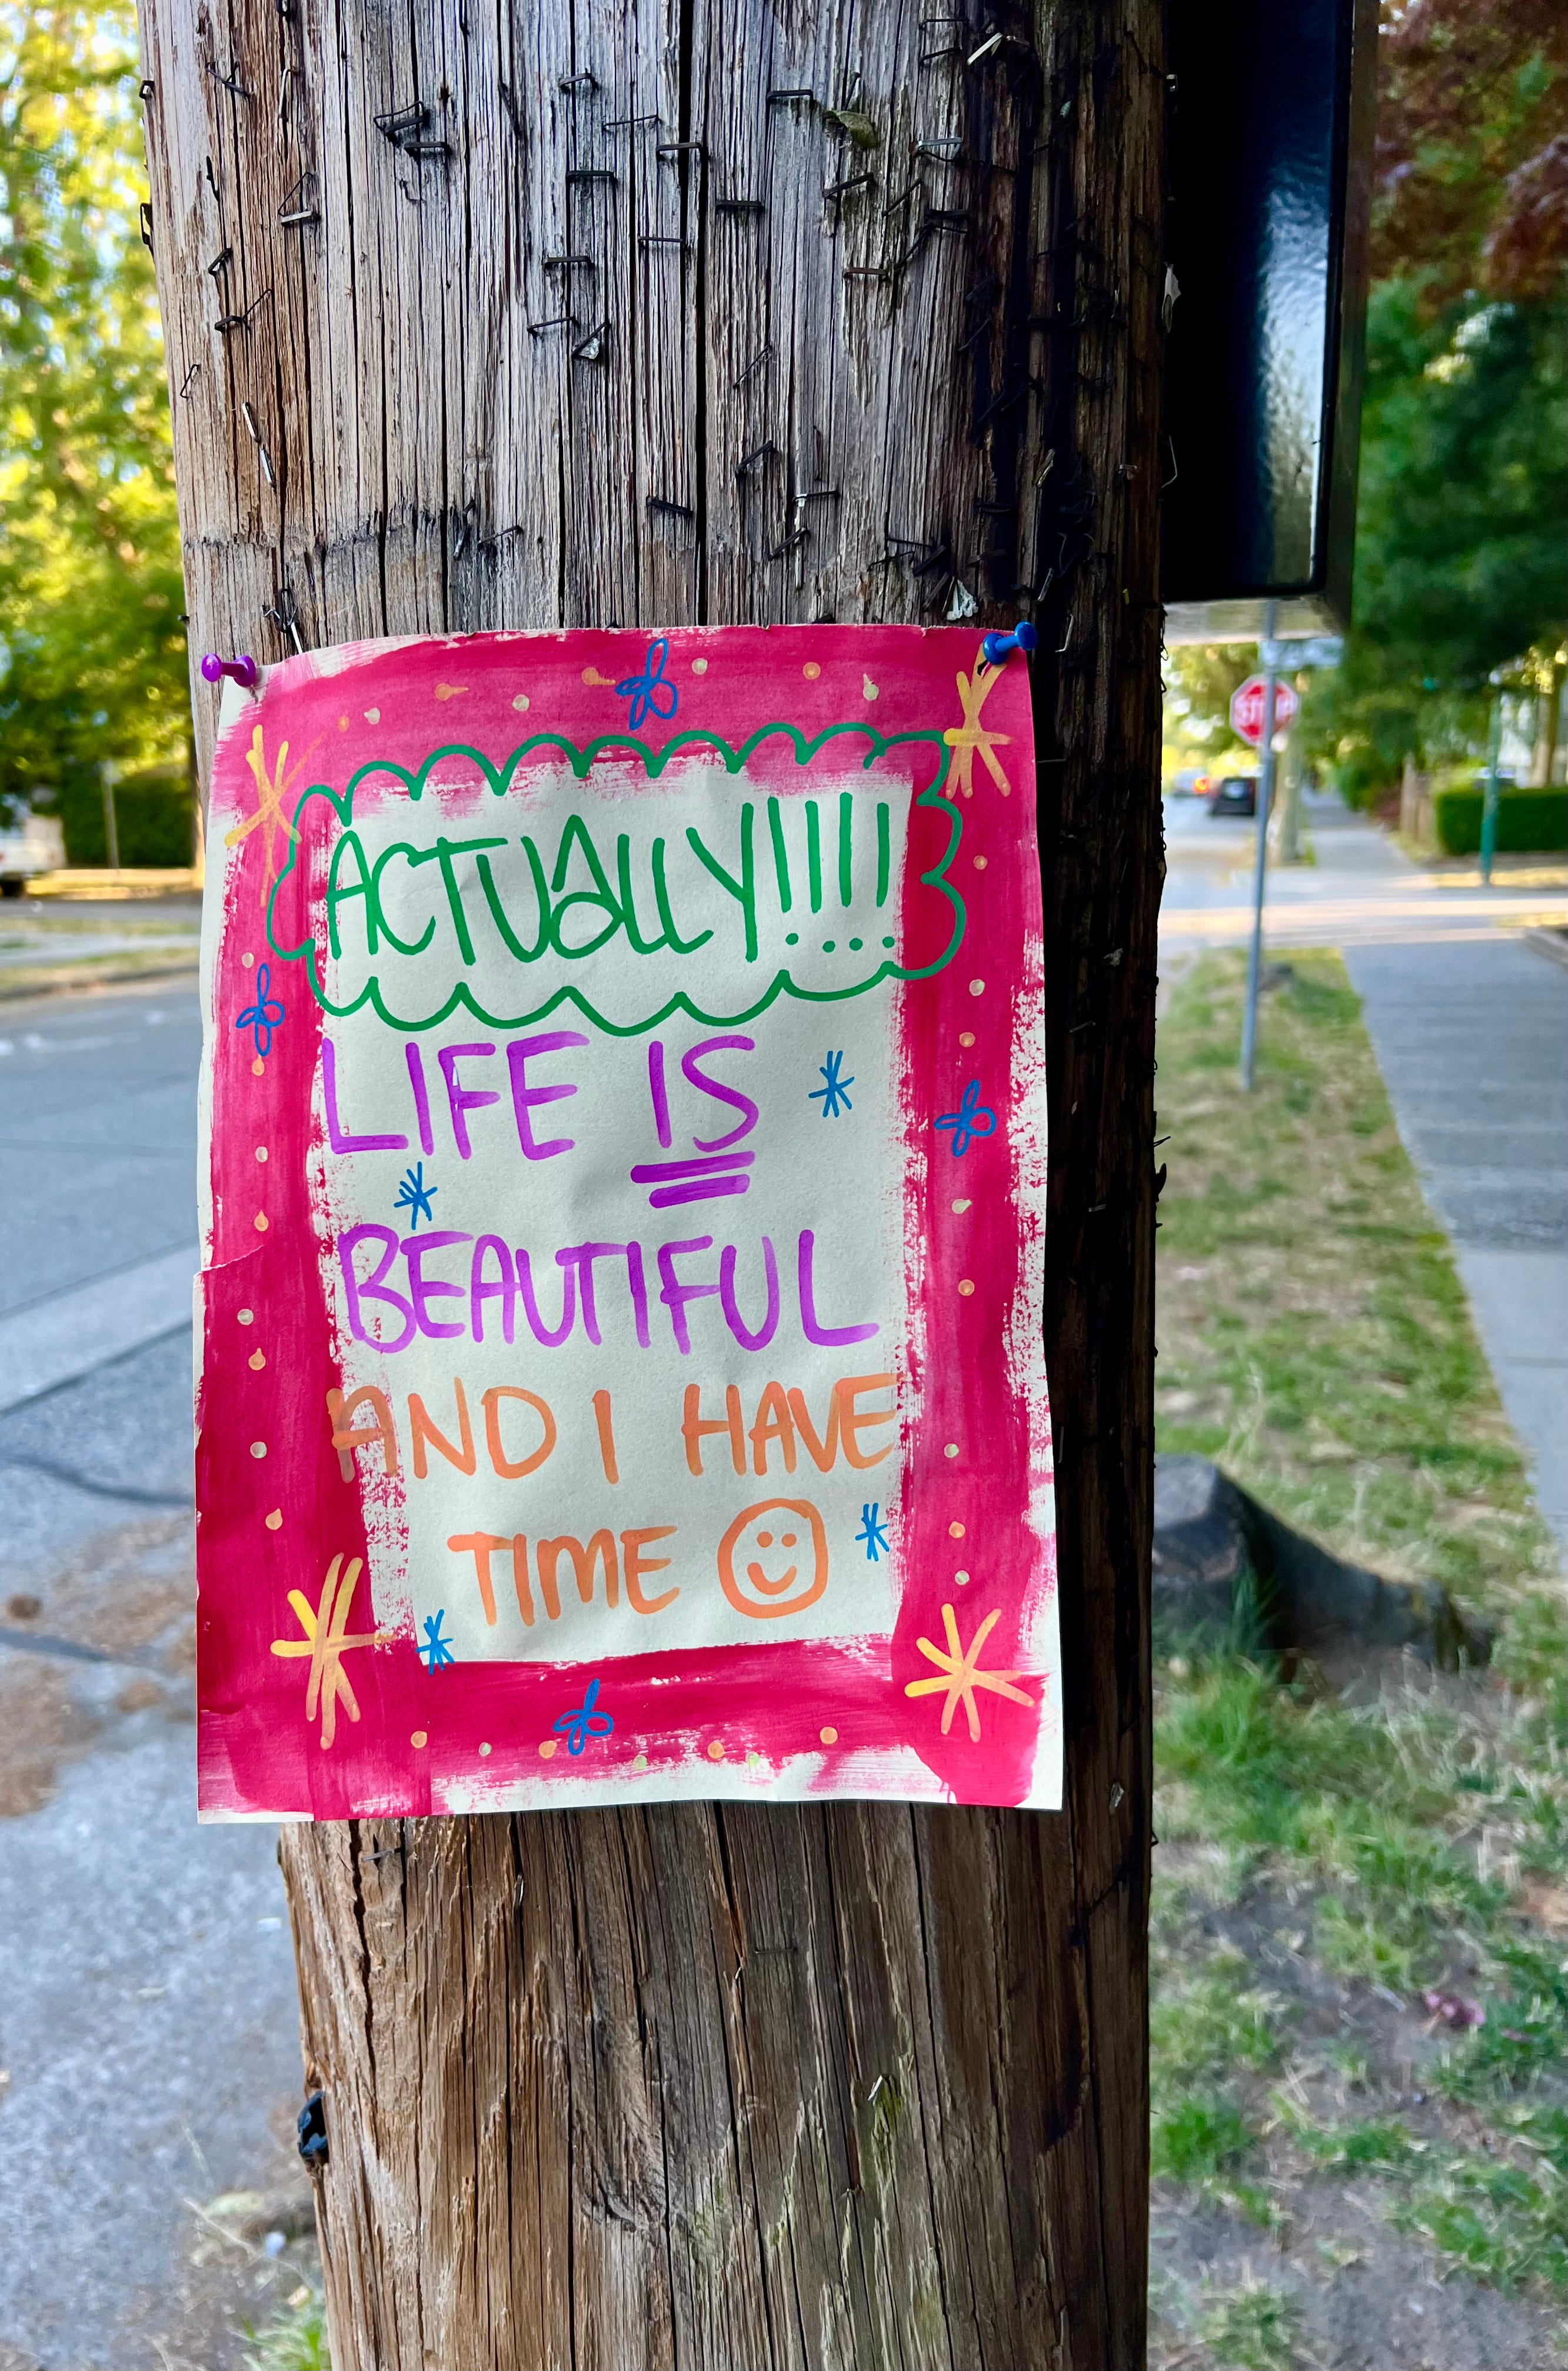 ACTUALLY!!!!!
LIFE IS
BEAUTIFUL
AND I HAVE
TIME
STOP